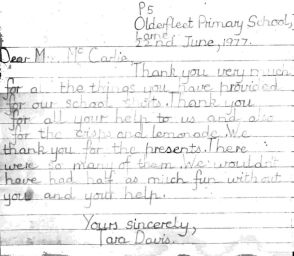 P5
Olderfleet Primary School,
Larne
22nd June, 1977.
Dear M... Mc Carlie,
Thank you very much
for all the things you have provided
for our school visits. Thank you
for all your help to us and also
for the crisps and lemonade. We
thank you for the presents. There
were so many of them. We wouldn't
have had half as much fun without
you and your help.
Yours sincerely,
Tara Davis.